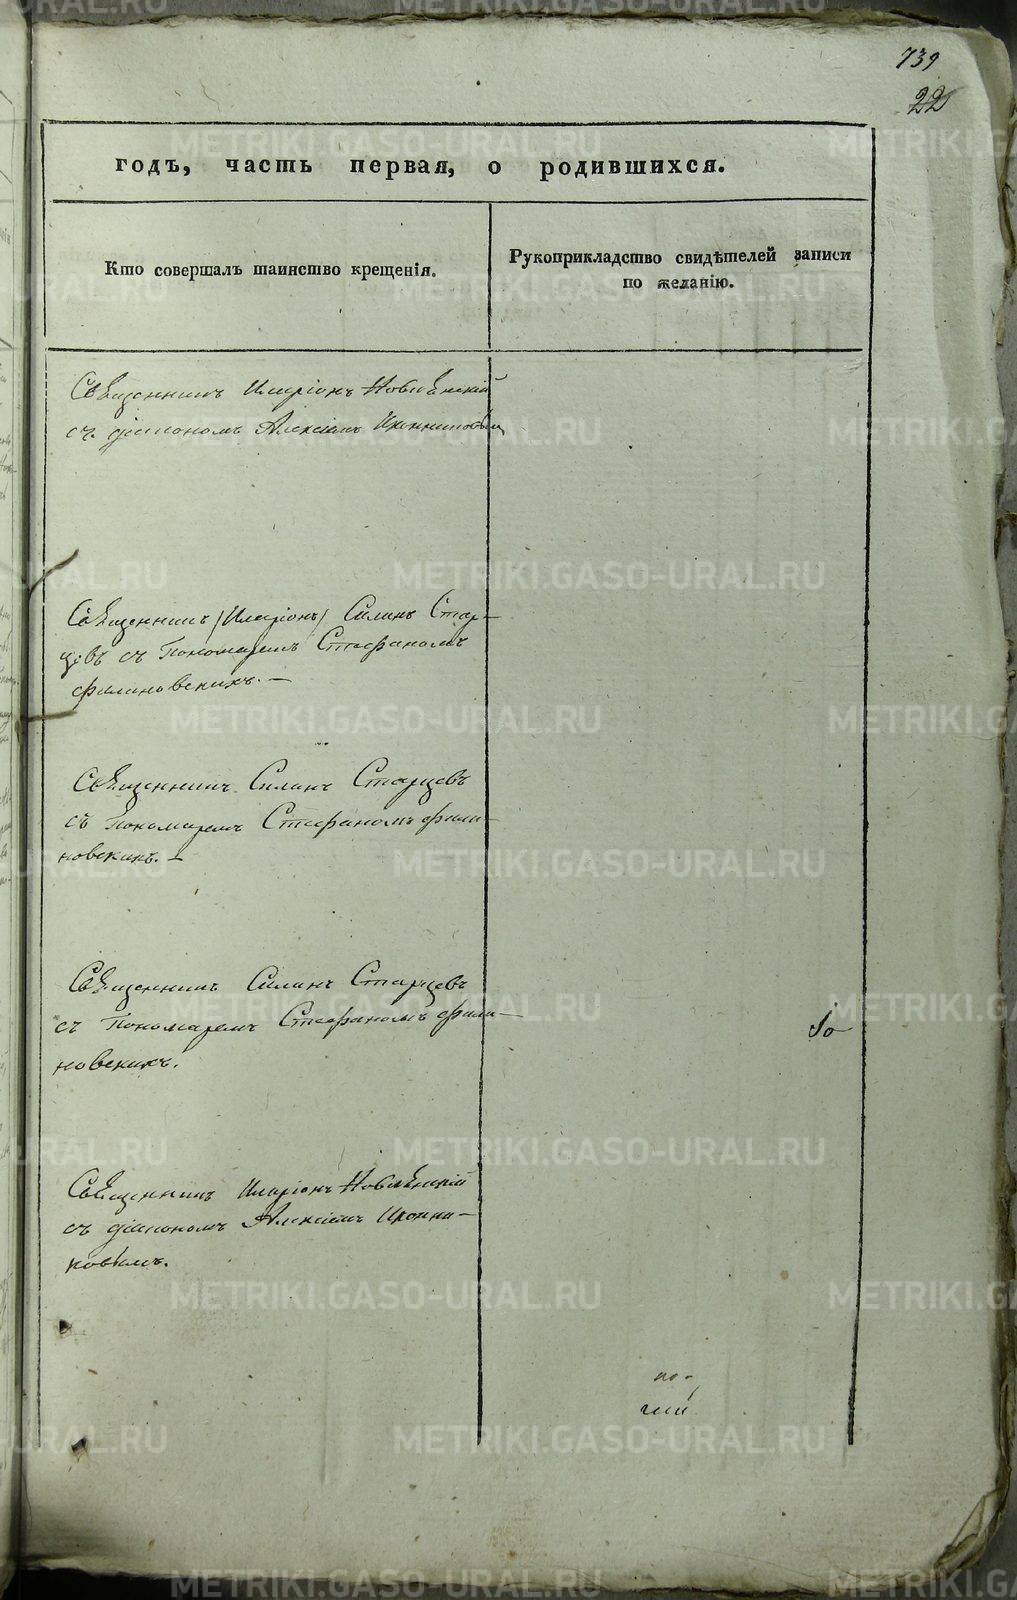 739
22
годъ, часть первая, о родившихся.
Кто совершалъ таинство крещенія.
Рукоприкладство свидѣтелей записи
по желанію.
Священникъ Иларіонъ
съ діакономъ Алексіемъ Иконниковым
Священникъ /Иларіонъ/ Силинъ Стар-
цевъ съ Пономаремъ Стефаномъ
Филиновскихъ.—
Священникъ Силинъ Старцевъ
съ Пономаремъ Стефаномъ Фили-
новскихъ.—
Священникъ Силинъ Старцевъ
съ Пономаремъ Стефаномъ Фили-
новскихъ.
Священникъ Иларіонъ
съ діакономъ Алексіемъ Иконни-
ковымъ.
по-
METRIKI.GASO-URAL.RU